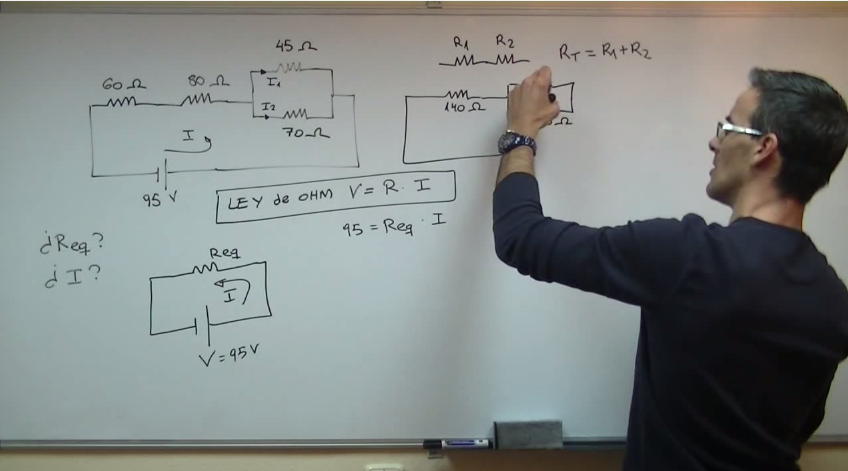 45 Ω
60 Ω
80 Ω
I1
I2
70 Ω
I
95 V
R1 R2
RT = R1 + R2
140 Ω
Ω
LEY de OHM V = R · I
95 = Req · I
¿Req?
¿I?
Req
I
V = 95 V